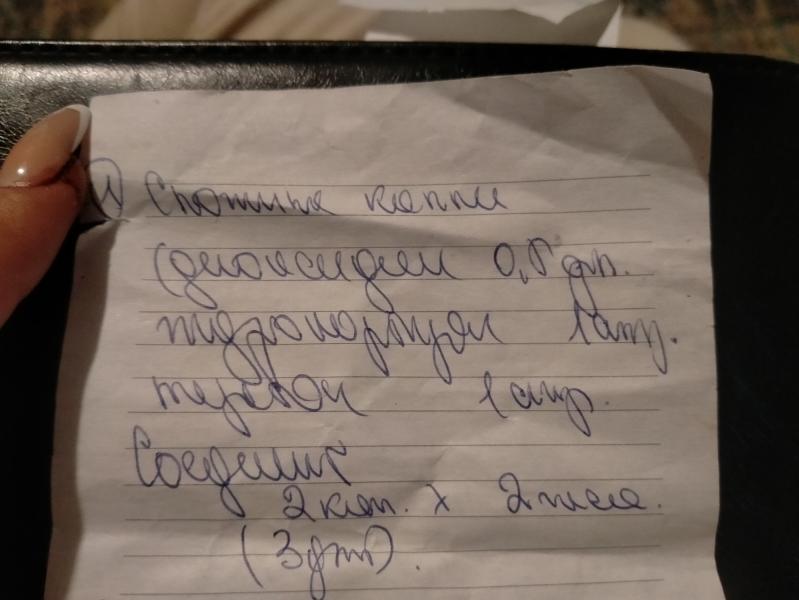 1) Сложные капли
(диоксидин 0,5 фл.
гидрокортизон 1 амп.
1 амп.
Соединить
2 кап. х
(3 дня).